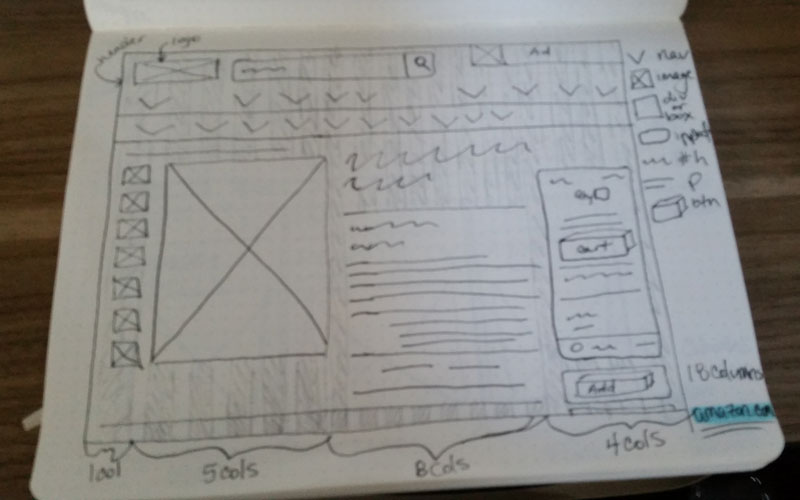 header
logo
Ad
nav
image
div
or
box
input
#h
P
btn
cart
Add
18 columns
amazon.com
1col
5cols
8cols
4cols